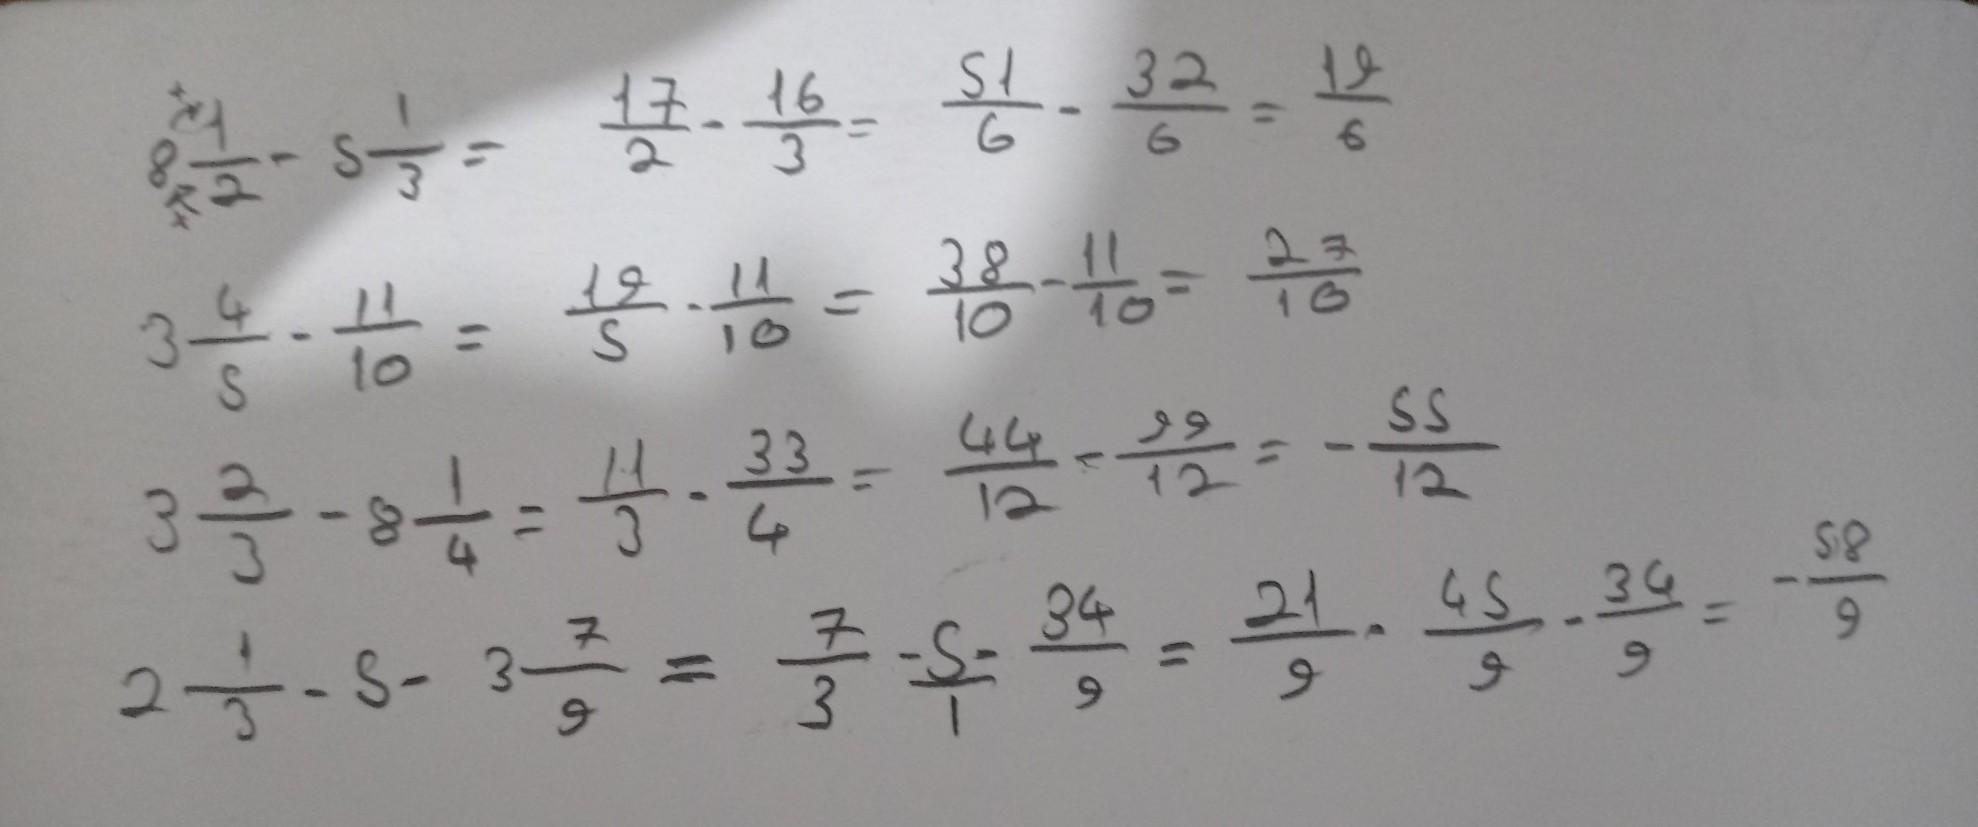 8 1/2 - 5 1/3 = 17/2 - 16/3 = 51/6 - 32/6 = 19/6
3 4/5 - 11/10 = 19/5 - 11/10 = 38/10 - 11/10 = 27/10
3 2/3 - 8 1/4 = 11/3 - 33/4 = 44/12 - 99/12 = - 55/12
2 1/3 - 5 - 3 7/9 = 7/3 - 5/1 - 34/9 = 21/9 - 45/9 - 34/9 = - 58/9